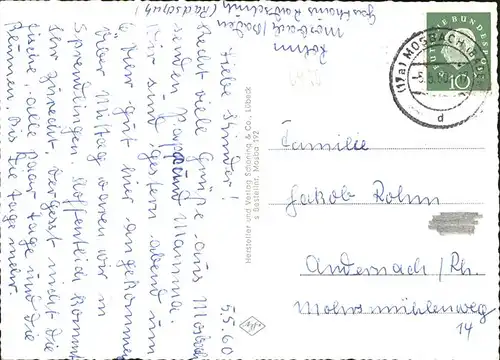 Rohm
Mosbach/Baden
Gasthaus Radschuh
(Radschuh)
5.5.60
Liebe Kinder!
Recht viele Grüße aus Mosbach
senden Papa und Mamma.
Wir sind gestern abend um
6 Uhr gut hier angekommen
Über Mittag waren wir in
Sprendlingen. Hoffentlich kommt
Ihr zurecht. Vergesst nicht die
Küche, alle paar Tage und die
Blumen. Bis die Tage mehr
Hersteller und Verlag Schöning & Co., Lübeck
s Bestellnr. Mosba 192
DEUTSCHE BUNDESPOST
10
(17a) MOSBACH
d
Familie
Jakob Rohm
Andernach/Rh.
Mohrsmühlenweg
14